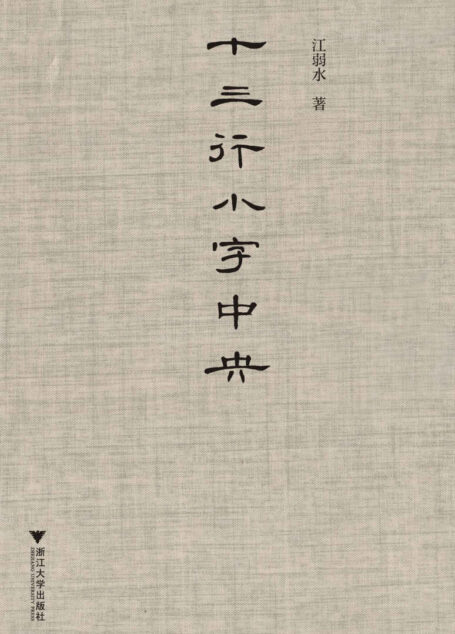 江弱水 著
十三行小字中央
浙江大学出版社
ZHEJIANG UNIVERSITY PRESS